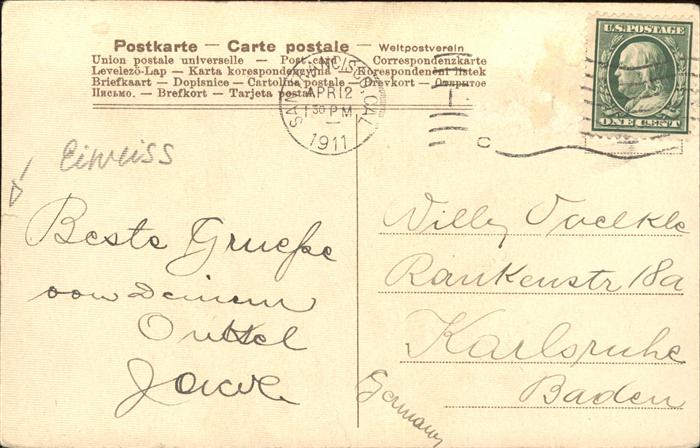 Postkarte — Carte postale — Weltpostverein
Union postale universelle — Post card — Correspondenzkarte
Levelező-Lap — Karta korespondencyjna — Korespondenční lístek
Briefkaart — Dopisnice — Cartolina postale — Brevkort — Открытое
Письмо. — Brefkort — Tarjeta postal
SAN FRANCISCO, CAL.
APR 12
1 30 PM
1911
U.S. POSTAGE
ONE CENT
Eiweiss
Beste Gruesse
von Deinem
Onkel
Willy Voelkle
Rankenstr 18a
Karlsruhe
Baden
Germany